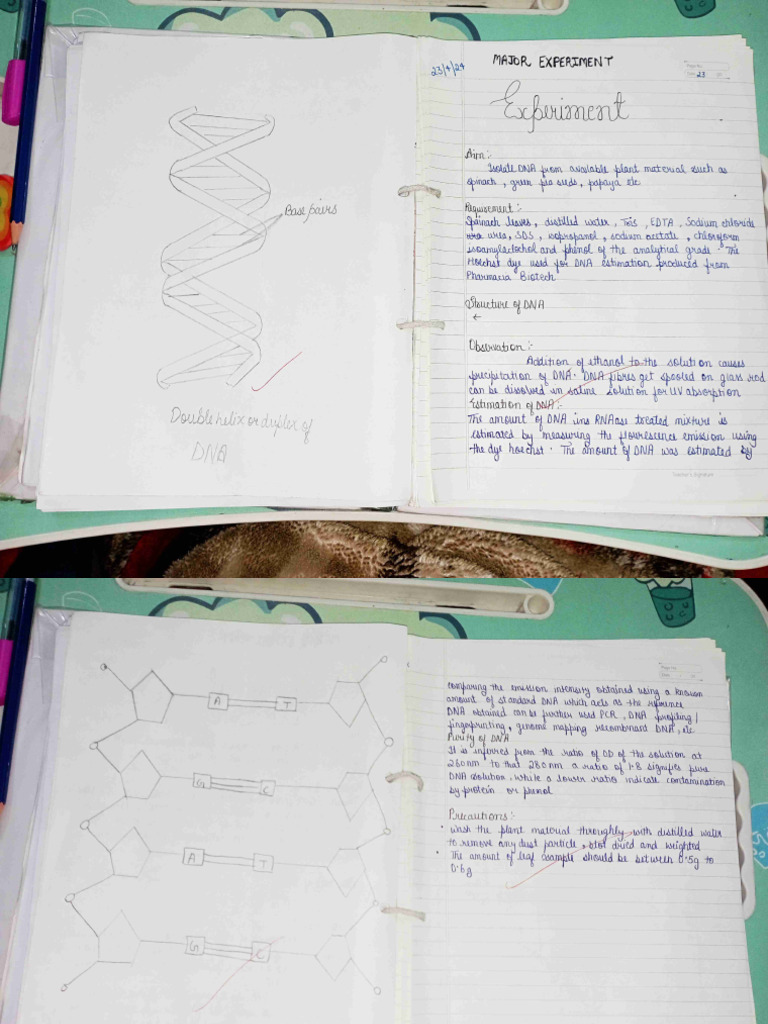 Base pairs
Double helix or duplex of
DNA
23/4/24
MAJOR EXPERIMENT
23
Experiment
Aim:-
Isolate DNA from available plant material such as
spinach, green pea seeds, papaya etc
Requirement:-
Spinach leaves, distilled water, Tris, EDTA, Sodium chloride
urea, SDS, isopropanol, sodium acetate, chloroform
isoamylachohol and phenol of the analytical grade. The
Hoechst dye used for DNA estimation produced from
Pharmacia Biotech
Structure of DNA
←
Observation:-
Addition of ethanol to the solution causes
precipitation of DNA. DNA fibres get spooled on glass rod
can be disolved in saline solution for UV absorption
Estimation of DNA:-
The amount of DNA ins RNAase treated mixture is
estimated by measuring the flourescence emission using
the dye hoechst. The amount of DNA was estimated by
Teacher's Signature
A T
G C
A T
G C
comparing the emission intensity obtained using a known
amount of standard DNA which acts as the reference
DNA obtained can be further used PCR, DNA profiling/
fingerprinting, genome mapping recombinant DNA, etc
Purity of DNA
It is inferred from the ratio of OD of the solution at
260nm to that 280nm a ratio of 1.8 signifies pure
DNA solution, while a lower ratio indicate contamination
by protein or phenol
Precautions:-
• Wash the plant material throughly with distilled water
to remove any dust particle, blot dried and weighted
• The amount of leaf sample should be between 0.5g to
0.6g